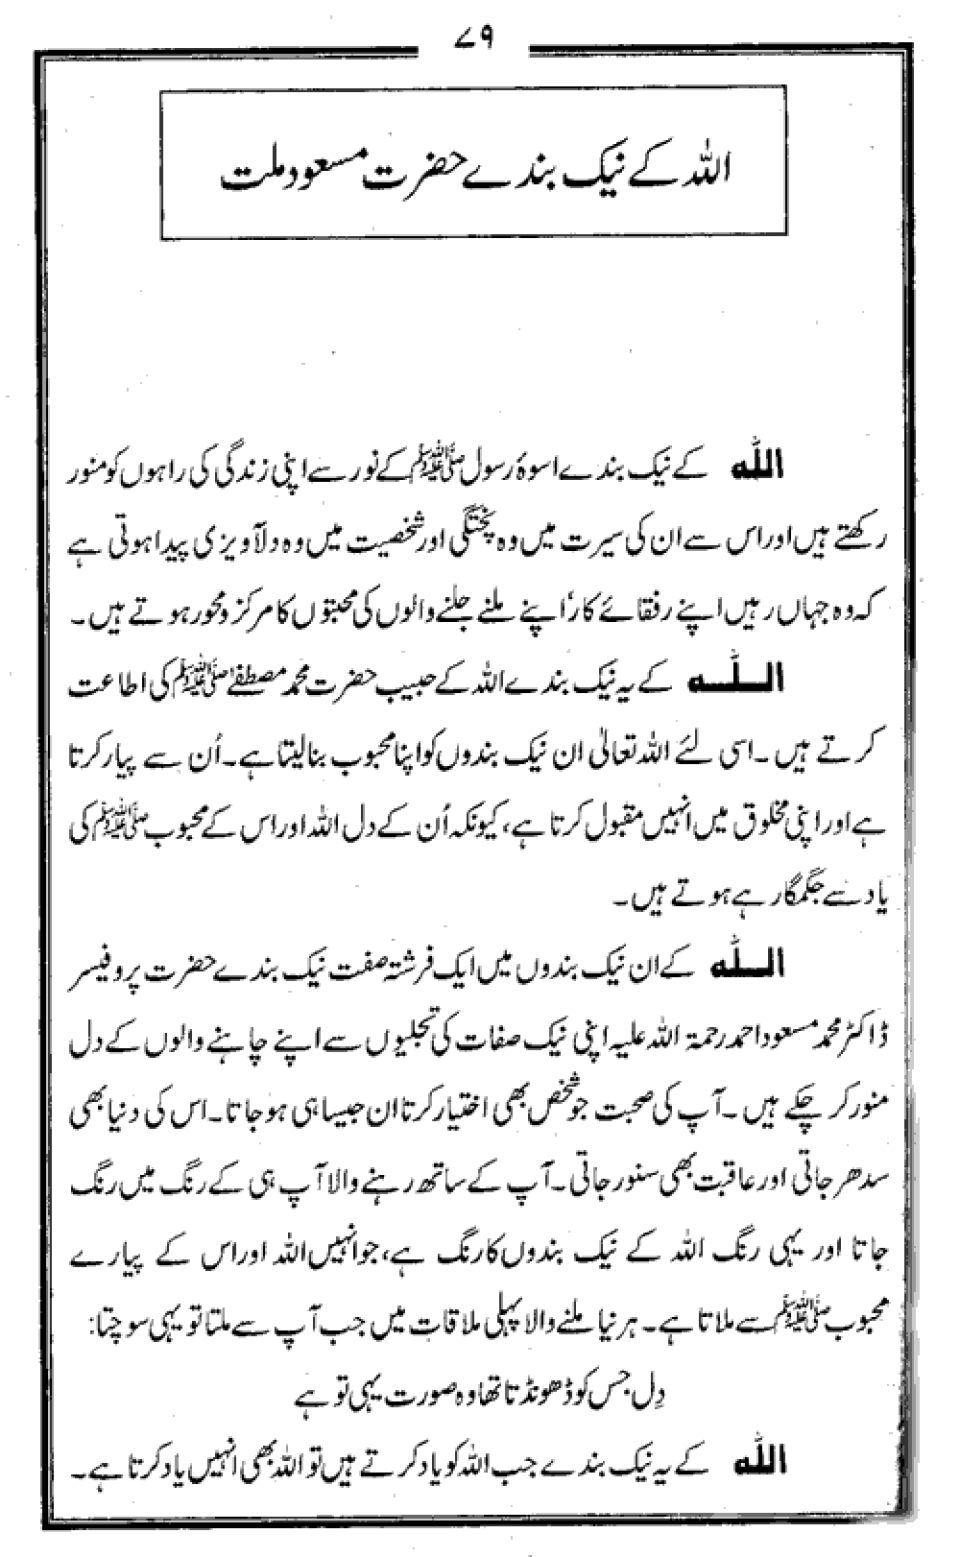 ۷۹
اللہ کے نیک بندے حضرت مسعود ملت
اللہ کے نیک بندے اسوۂ رسول ﷺ کے نور سے اپنی زندگی کی راہوں کو منور
رکھتے ہیں اور اس سے ان کی سیرت میں وہ پختگی اور شخصیت میں وہ دلآویزی پیدا ہوتی ہے
کہ وہ جہاں رہیں اپنے رفقائے کار، اپنے ملنے جلنے والوں کی محبتوں کا مرکز و محور ہوتے ہیں۔
اللہ کے یہ نیک بندے اللہ کے حبیب حضرت محمد مصطفےٰ ﷺ کی اطاعت
کرتے ہیں۔ اسی لئے اللہ تعالیٰ ان نیک بندوں کو اپنا محبوب بنا لیتا ہے۔ اُن سے پیار کرتا
ہے اور اپنی مخلوق میں انہیں مقبول کرتا ہے، کیونکہ اُن کے دل اللہ اور اس کے محبوب ﷺ کی
یاد سے جگمگا رہے ہوتے ہیں۔
اللہ کے ان نیک بندوں میں ایک فرشتہ صفت نیک بندے حضرت پروفیسر
ڈاکٹر محمد مسعود احمد رحمۃ اللہ علیہ اپنی نیک صفات کی تجلیوں سے اپنے چاہنے والوں کے دل
منور کر چکے ہیں۔ آپ کی صحبت جو شخص بھی اختیار کرتا ان جیسا ہی ہو جاتا۔ اس کی دنیا بھی
سدھر جاتی اور عاقبت بھی سنور جاتی۔ آپ کے ساتھ رہنے والا آپ ہی کے رنگ میں رنگ
جاتا اور یہی رنگ اللہ کے نیک بندوں کا رنگ ہے، جو انہیں اللہ اور اس کے پیارے
محبوب ﷺ سے ملاتا ہے۔ ہر نیا ملنے والا پہلی ملاقات میں جب آپ سے ملتا تو یہی سوچتا:
دِل جس کو ڈھونڈتا تھا وہ صورت یہی تو ہے
اللہ کے یہ نیک بندے جب اللہ کو یاد کرتے ہیں تو اللہ بھی انہیں یاد کرتا ہے۔